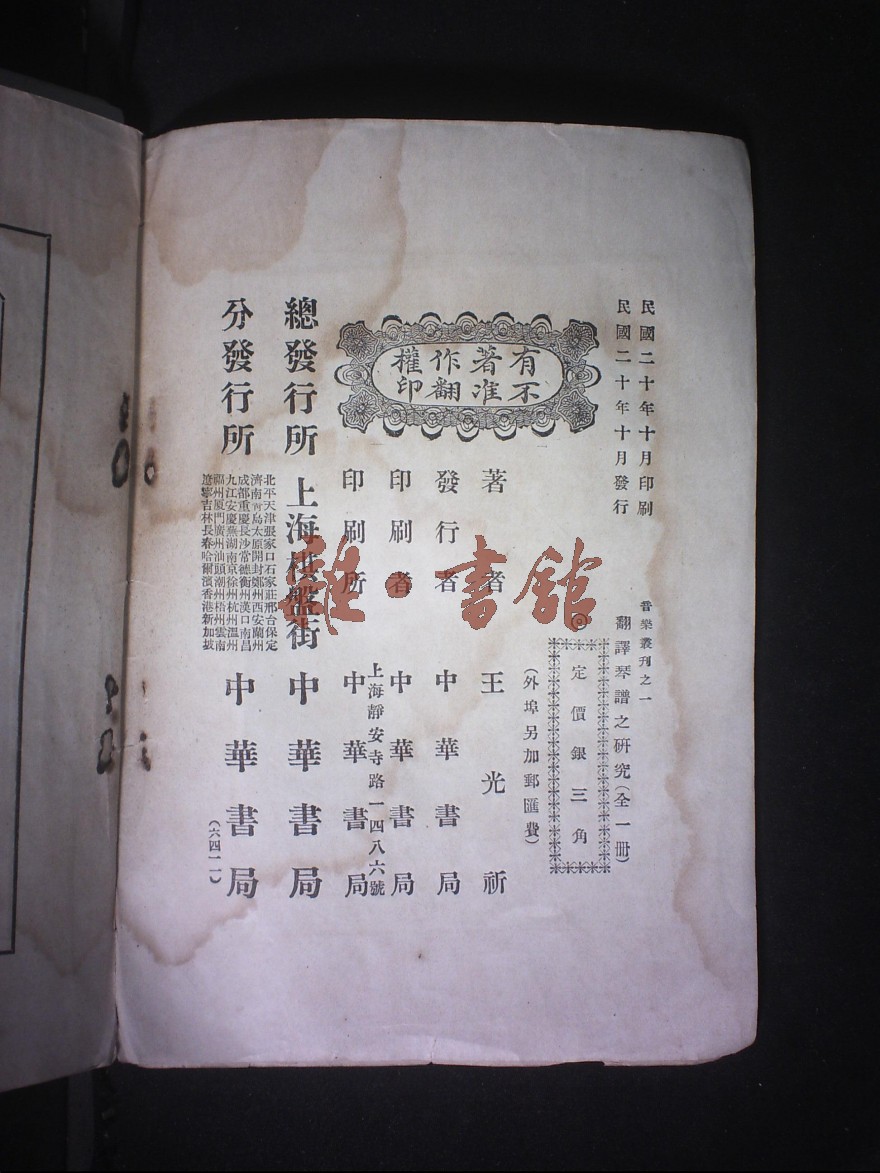 民國二十年十月印刷
民國二十年十月發行
音樂叢刊之一
翻譯琴譜之研究(全一冊)
◎定價銀三角
(外埠另加郵匯費)
有著作權
不准翻印
著者 王光祈
發行者 中華書局
印刷者 中華書局
上海靜安寺路一四八六號
印刷所 中華書局
總發行所 上海棋盤街 中華書局
分發行所
北平天津張家口石家莊邢台保定
濟南青島太原開封鄭州西安蘭州
成都重慶長沙常德衡州漢口南昌
九江安慶蕪湖南京徐州杭州溫州
福州厦門廣州汕頭潮州梧州雲南
遼寧吉林長春哈爾濱香港新加坡
中華書局
(六四一一)
雅·書館